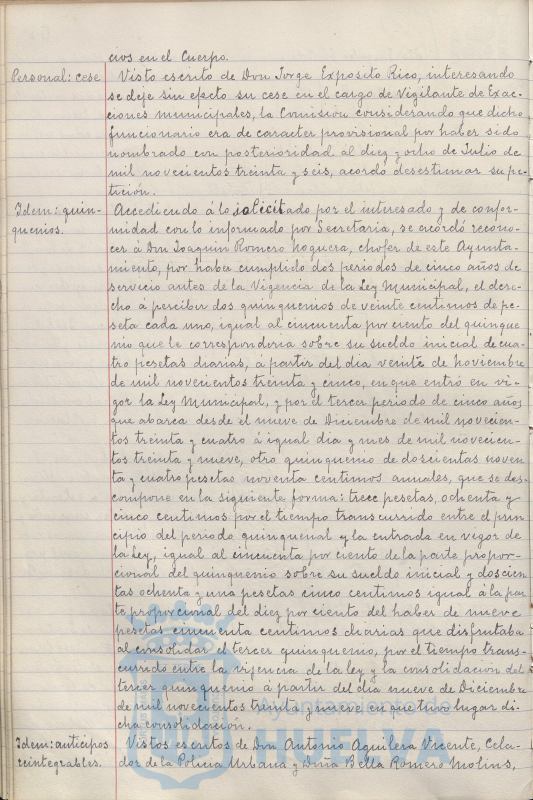 cios en el Cuerpo.
Personal: cese Visto escrito de Don Jorge Exposito Rico, interesando
se deje sin efecto su cese en el cargo de Vigilante de Exac-
ciones municipales, la Comisión considerando que dicho
funcionario era de caracter provisional por haber sido
nombrado con posterioridad al diez y ocho de Julio de
mil novecientos treinta y seis, acordó desestimar su pe-
tición.
Idem: quin- Accediendo á lo solicitado por el interesado y de confor-
quenios. midad con lo informado por Secretaria, se acordó recono-
cer á Don Joaquin Romero Noguera, chofer de este Ayunta-
miento, por haber cumplido dos periodos de cinco años de
servicio antes de la Vigencia de la Ley Municipal, el dere-
cho á percibir dos quinquenios de veinte centimos de pe-
seta cada uno, igual al cincuenta por ciento del quinque
nio que le corresponderia sobre su sueldo inicial de cua-
tro pesetas diarias, á partir del dia veinte de noviembre
de mil novecientos treinta y cinco, en que entró en vi-
gor la Ley Municipal, y por el tercer periodo de cinco años
que abarca desde el nueve de Diciembre de mil novecien-
tos treinta y cuatro á igual dia y mes de mil novecien-
tos treinta y nueve, otro quinquenio de doscientas noven
ta y cuatro pesetas noventa centimos anuales, que se des-
compone en la siguiente forma: trece pesetas, ochenta y
cinco centimos por el tiempo transcurrido entre el prin-
cipio del periodo quinquenal y la entrada en vigor de
la Ley, igual al cincuenta por ciento de la parte propor-
cional del quinquenio sobre su sueldo inicial y doscien
tas ochenta y una pesetas cinco centimos igual á la par
te proporcional del diez por ciento del haber de nueve
pesetas cincuenta centimos diarias que disfrutaba
al consolidar el tercer quinquenio, por el tiempo trans-
currido entre la vigencia de la ley y la consolidación del
tercer quinquenio á partir del dia nueve de Diciembre
de mil novecientos treinta y nueve en que tuvo lugar di-
cha consolidación.
Idem: anticipos Vistos escritos de Don Antonio Aguilera Vicente, Cela-
reintegrables. dor de la Policia Urbana y Doña Bella Romero Molins,
Ayuntamiento de
HUELVA